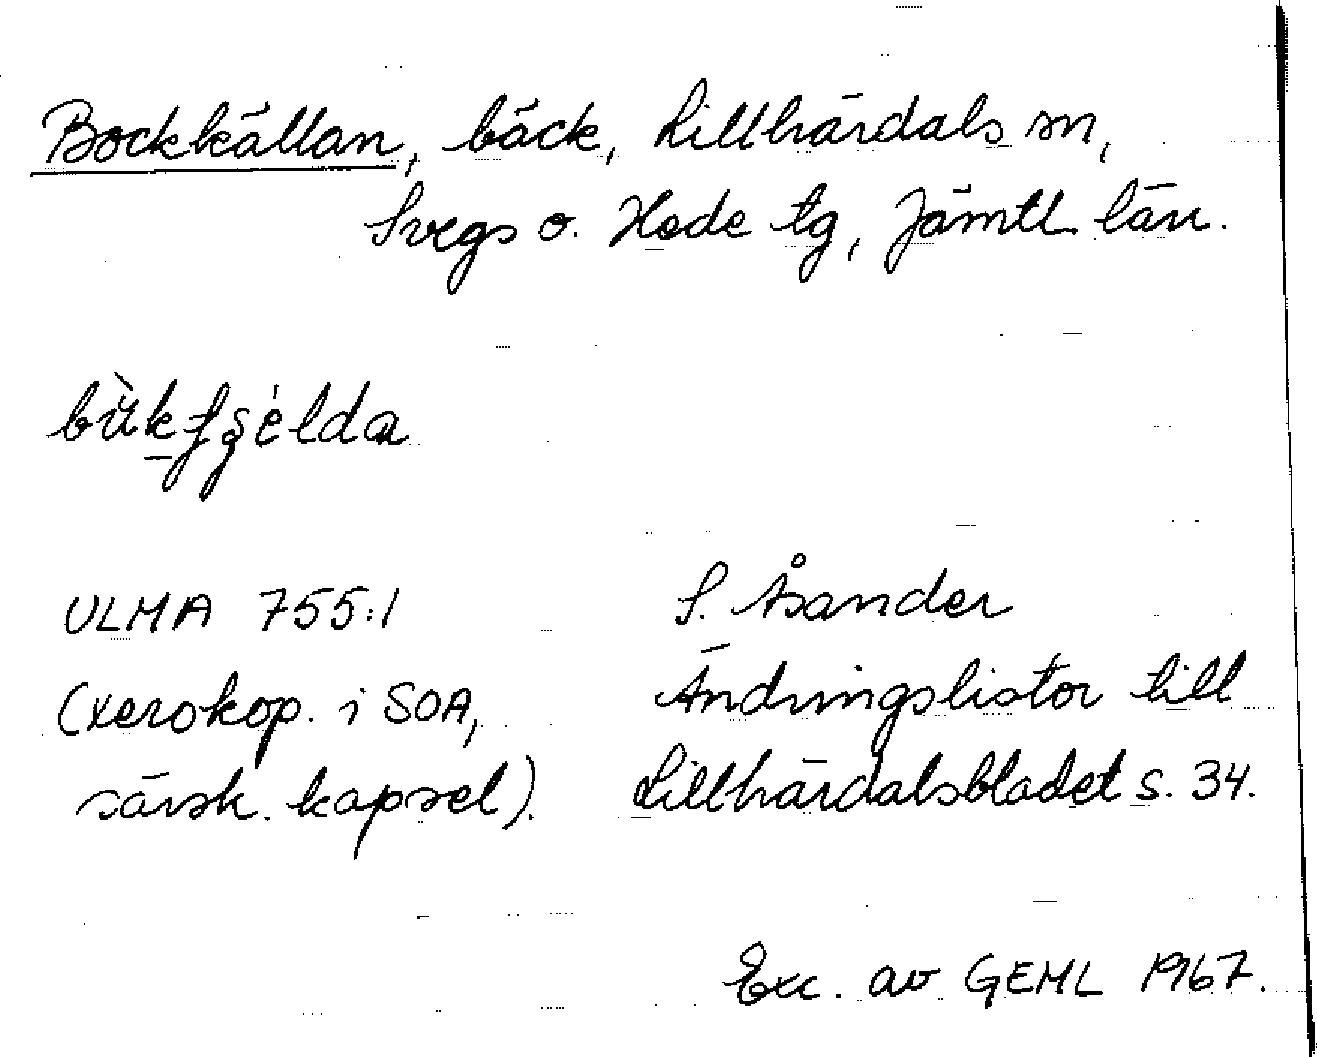 Bockkällan, bäck, Lillhärdals sn,
Svegs o. Hede tg, Jämtl. län.
ULMA 755:1
S. Åsander
(xerokop. i SOA,
Ändringslistor till
särsk. kapsel).
Lillhärdalsbladet s. 34.
Exc. av GEML 1967.